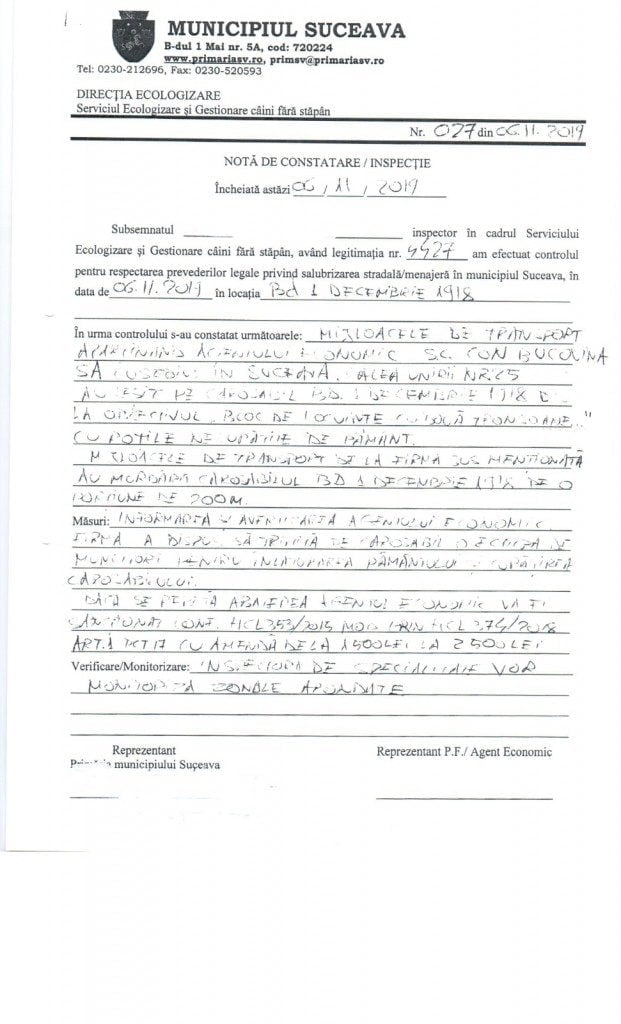 MUNICIPIUL SUCEAVA
B-dul 1 Mai nr. 5A, cod: 720224
www.primariasv.ro, primsv@primariasv.ro
Tel: 0230-212696, Fax: 0230-520593
DIRECȚIA ECOLOGIZARE
Serviciul Ecologizare și Gestionare câini fără stăpân
Nr. 027 din 06.11.2019
NOTĂ DE CONSTATARE / INSPECȚIE
Încheiată astăzi 06 / 11 / 2019
Subsemnatul inspector în cadrul Serviciului
Ecologizare și Gestionare câini fără stăpân, având legitimația nr. 4427 am efectuat controlul
pentru respectarea prevederilor legale privind salubrizarea stradală/menajeră în municipiul Suceava, în
data de 06.11.2019 în locația BD 1 DECEMBRIE 1918
În urma controlului s-au constatat următoarele: MIJLOACELE DE TRANSPORT
AGENTULUI ECONOMIC S.C. CON BUCOVINA
SA CU SEDIUL ÎN SUCEAVA, ALEA UNIRII NR.25
AU IEȘIT PE CAROSABIL BD. 1 DECEMBRIE 1918 DE
LA OBIECTIVUL „BLOC DE LOCUINTE CU DOUĂ TRONSOANE"
CU ROTILE DE PĂMANT.
MIJLOACELE DE TRANSPORT DE LA FIRMA SUS MENTIONATĂ
AU MURDĂRIT CAROSABILUL BD 1 DECEMBRIE 1918 PE O
PORTIUNE DE 200M.
Măsuri: INFORMAREA ȘI AVERTIZAREA AGENTULUI ECONOMIC.
FIRMA A DISPUS SĂ TRIMITĂ PE CAROSABIL O ECHIPĂ DE
MUNCITORI PENTRU PĂMÂNTULUI ȘI CURĂȚIREA
CAROSABILULUI.
DACĂ SE REPETĂ ABATEREA AGENTUL ECONOMIC VA FI
SANCTIONAT CONF. HCL 353/2015 MOD PRIN HCL 374/2018
ART.1 PCT 17 CU AMENDĂ DE LA 1500LEI LA 2500LEI
Verificare/Monitorizare: INSPECTORII DE SPECIALITATE VOR
MONITORIZA ZONELE
Reprezentant Reprezentant P.F./ Agent Economic
municipiului Suceava